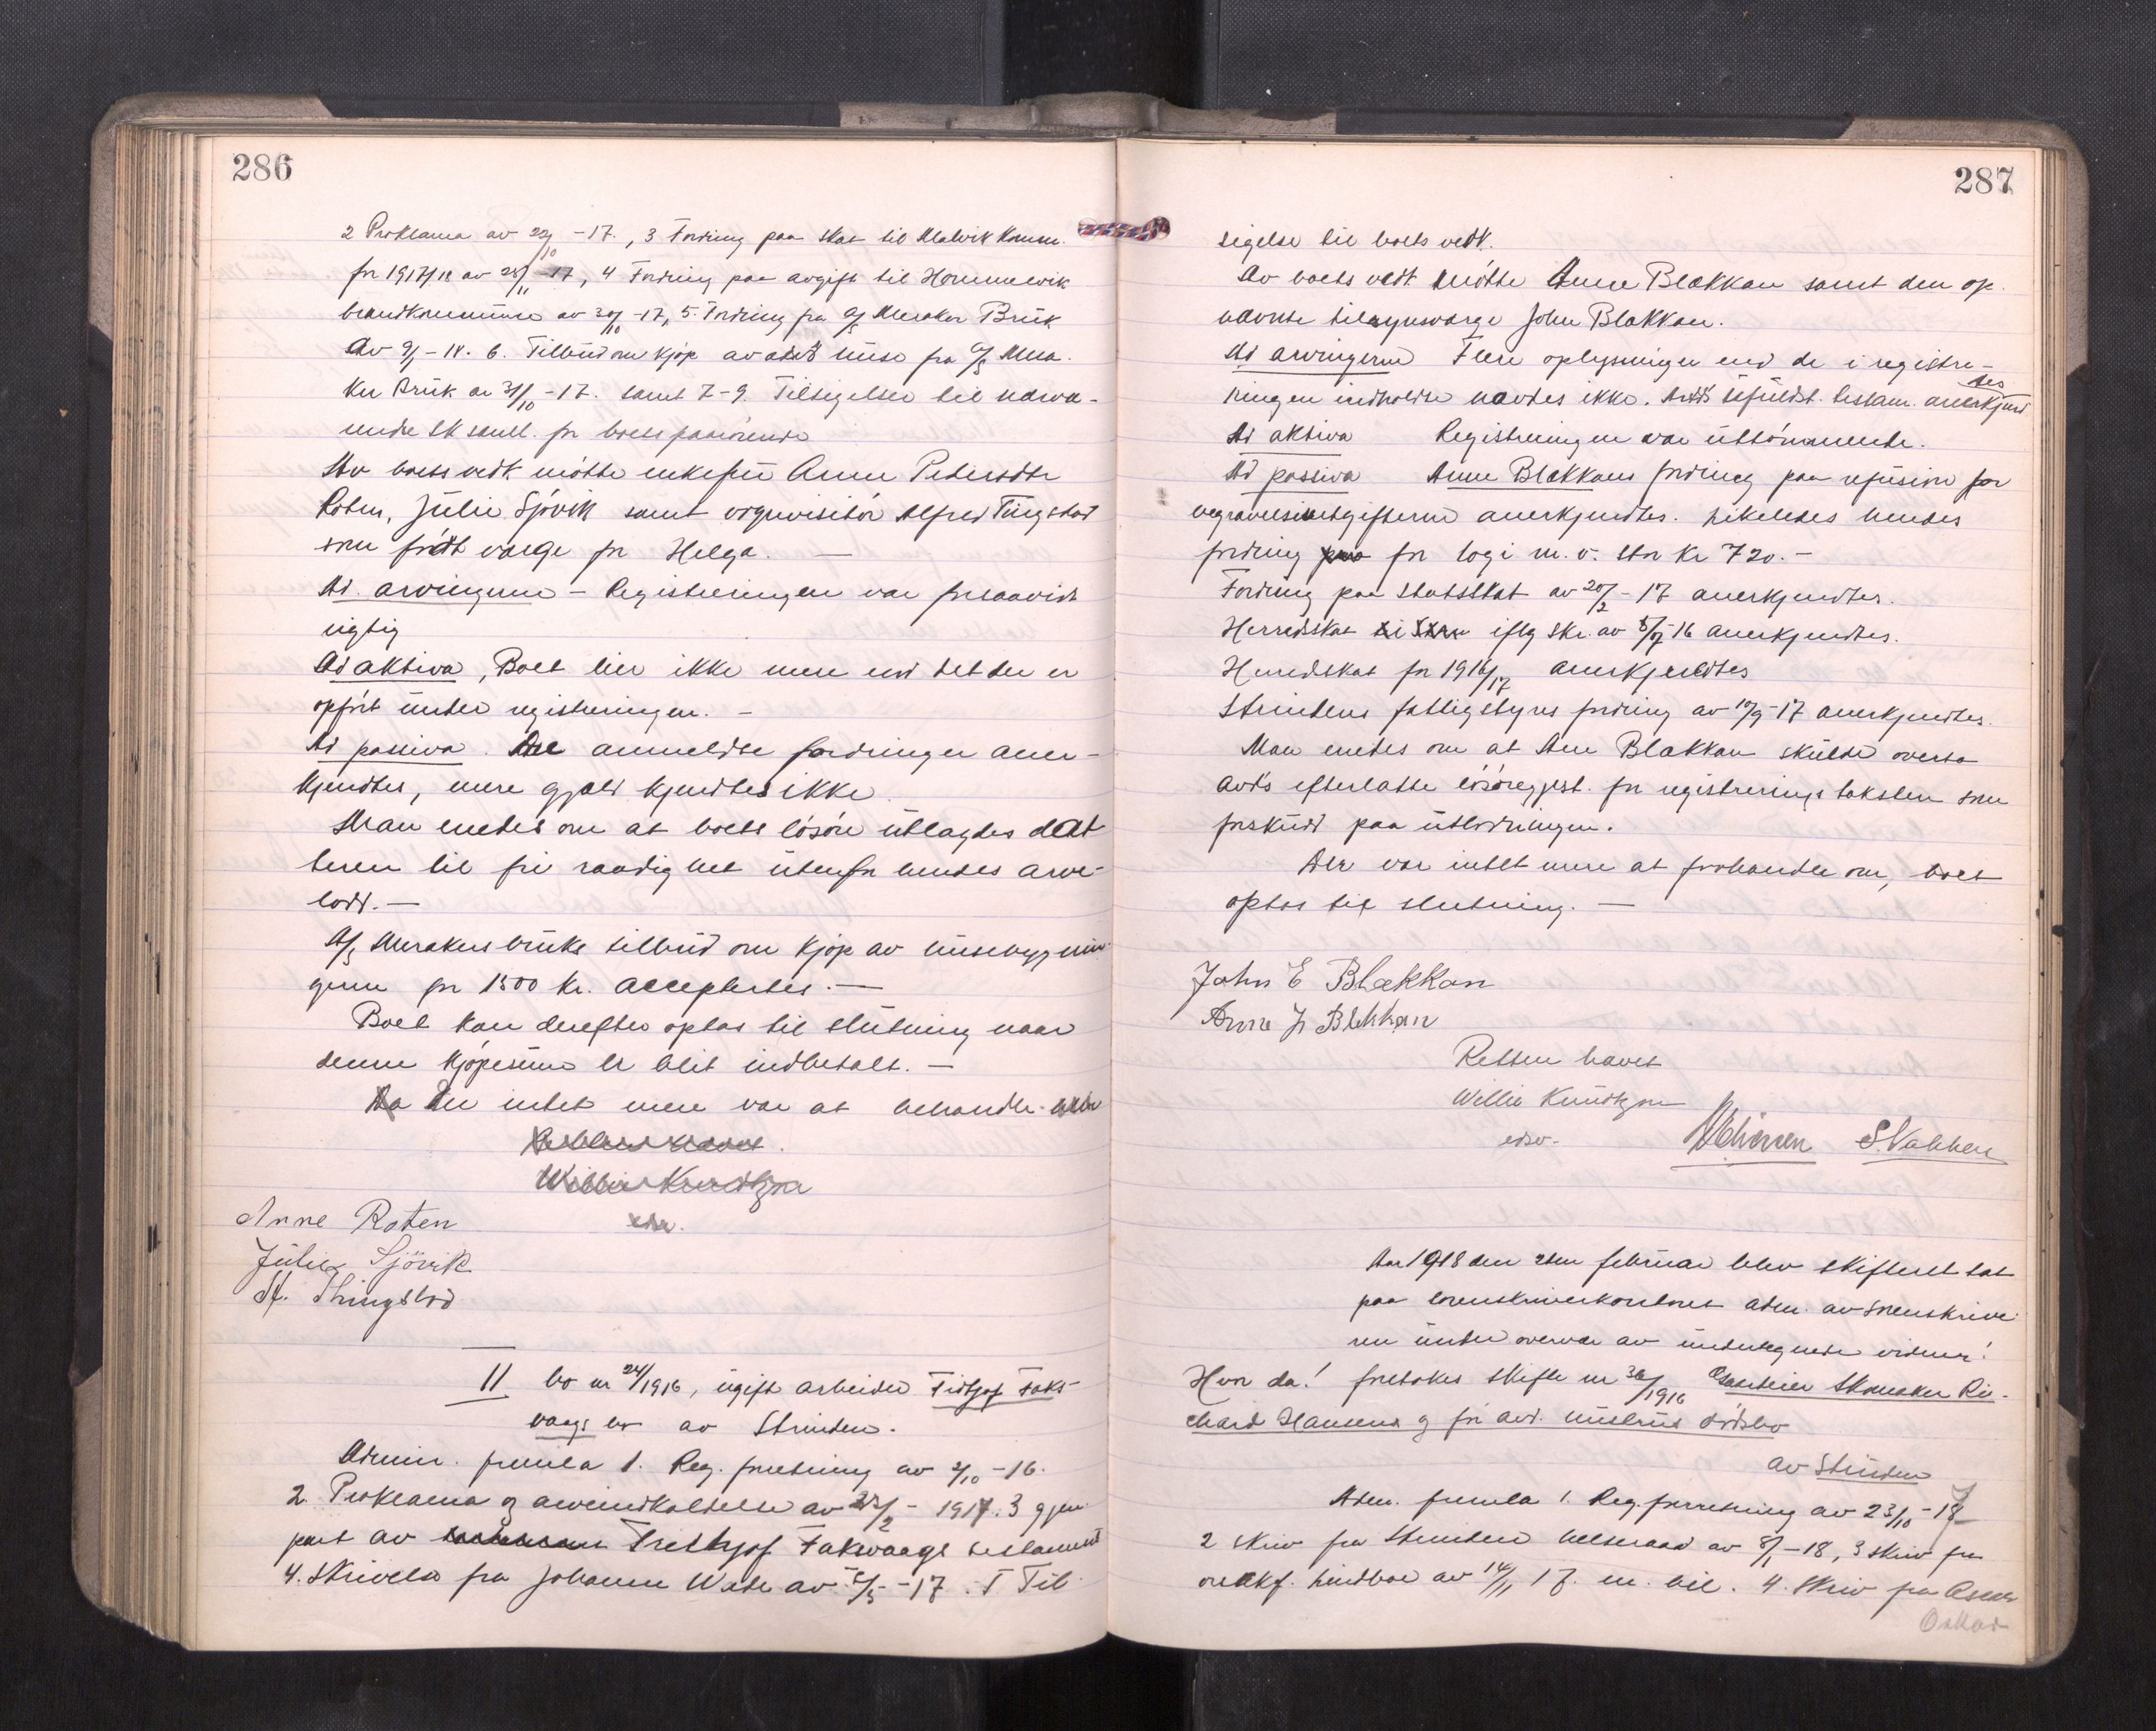 286
2 Proklama av 22/10 -17., 3 Fordring paa skat til Malvik Komm.
for 1917/18 av 28/11 -17, 4 Fordring paa avgift til Hommelvik
brandkommune av 30/10 -17, 5. Fordring fra A/S Meraker Bruk
av 9/1 - 18. 6. Tilbud om kjøp av avd's huse fra A/S Mera-
ker Bruk av 31/10 -17. samt 7-9. Tilsigelser til nærvæ-
rende sksaml. for boets paarørende
For boets vedk. møtte enkefru Anne Petersdtr
Roten, Julie Sjøvik samt Alfred Tingstad
som født værge for Helga. —
Ad. arvingerne - Registreringen var forsaavidt
rigtig
Ad aktiva, Boet eier ikke mere end det der er
opført under registreringen. -
Ad passiva. De anmeldte fordringer aner-
kjendtes, mere gjæld kjendtes ikke.
Man enedes om at boets løsøre utlagdes dat
teren til fri raadighet utenfor hendes arve-
lodd. —
A/S Merakers bruks tilbud om kjøp av husebygnin-
gerne for 1500 kr. accepteres. —
Boet kan derefter optas til slutning naar
denne kjøpesum er blit indbetalt. —
Da der intet mere var at behandle
Retten hævet.
Willie Knudtzon
edsv.
Anne Roten
Julie Sjövik
A. Thingstad
II bo nr 24/1916, ugift arbeider Fridtjof Faks-
vaags bo av Strinden.
Admin. fremla 1. Reg. forretning av 2/10 -16.
2. Proklama og arveindkaldelse av 22/2 - 1917. 3 gjen-
part av Fridtjof Faksvaags testament
4. Skrivelse fra Johanne Wade av 5/5 -17. 5 Til-
287
sigelse til boets vedk.
Av boets vedk møtte Anne Blækkan samt den op-
nævnte tilsynsværge John Blækkan.
Ad arvingerne Flere oplysninger end de i registre-
ringen indholdte havdes ikke. Avd's testam. anerkjend
tes
Ad aktiva Registreringen var uttømmende.
Ad passiva Anne Blækkans fordring paa refusion for
begravelsesutgifterne anerkjendtes. Likeledes hendes
fordring paa for logi m. v. stor kr 720. -
Fordring paa statsskat av 20/2 - 17 anerkjendtes.
Herredskat iflg skr. av 5/7 16 anerkjendtes.
Herredskat for 1916/17 anerkjendtes
Strindens fattigstyres fordring av 10/9 -17 anerkjendtes.
Man enedes om at Anne Blækkan skulde overta
avd's efterlatte løsøregjenst. for registreringstaksten som
forskudd paa utlodningen.
Der var intet mere at forhandle om, boet
optas til slutning. —
John E Blækkan
Anne J Blekkan
Retten hævet
Willie Knudtzon
edsv.
S. Vakken
Aar 1918 den 2den februar blev skifteret sat
paa sorenskriverkontoret adm. av sorenskrive-
ren under overvær av undertegnede vidner.
Hvor da! foretokes skifte nr 36/1916 Gaardeier Skomaker Ri-
chard Hansens og før avd. hustrus dødsbo
av Strinden
Adm. fremla 1. Reg. forretning av 23/10 - 17
2 skriv fra Strinden helseraad av 8/1 - 18, 3 skriv fra
av 14/11 17. m. bil. 4. skriv fra Oscar
Oskar